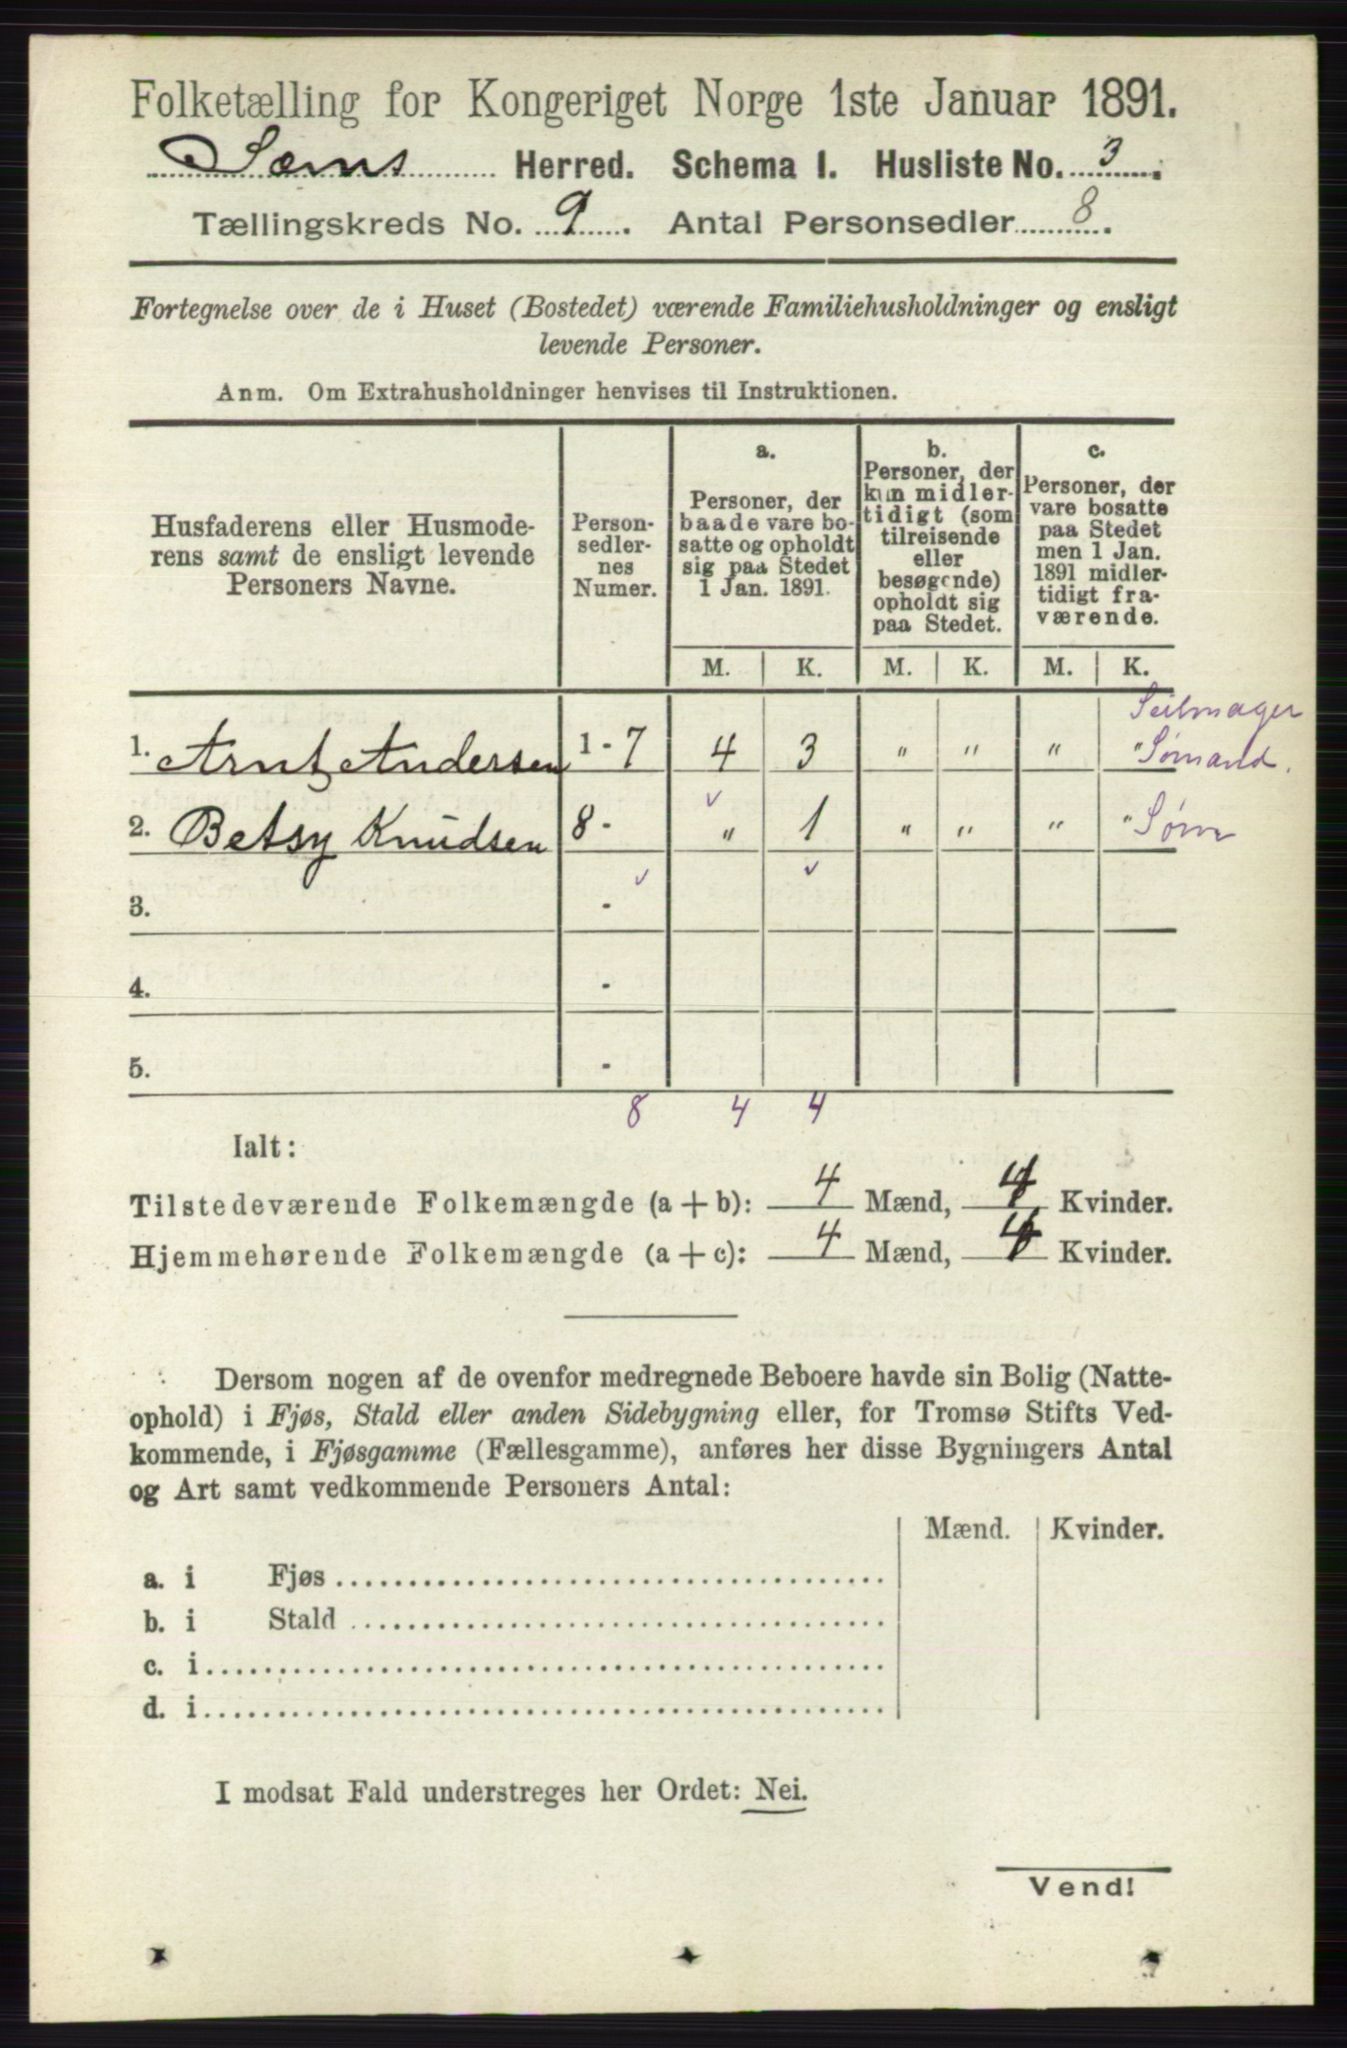 Folketælling for Kongeriget Norge 1ste Januar 1891.
Sems Herred. Schema I. Husliste No. 3.
Tællingskreds No. 9. Antal Personsedler 8.
Fortegnelse over de i Huset (Bostedet) værende Familiehusholdninger og ensligt
levende Personer.
Anm. Om Extrahusholdninger henvises til Instruktionen.
Husfaderens eller Husmode-
rens samt de ensligt levende
Personers Navne.
Person-
sedler-
nes
Numer.
a.
Personer, der
baade vare bo-
satte og opholdt
sig paa Stedet
1 Jan. 1891.
b.
Personer, der
kun midler-
tidigt (som
tilreisende
eller
besøgende)
opholdt sig
paa Stedet.
c.
Personer, der
vare bosatte
paa Stedet
men 1 Jan.
1891 midler-
tidigt fra-
værende.
M. K. M. K. M. K.
Seilmager
1. Arnt Andersen 1 - 7 4 3 " " " " Sømand.
2. Betsy Knudsen 8 - " 1 " " " "
3. -
4. -
5. -
8 4 4
Ialt:
Tilstedeværende Folkemængde (a + b): 4 Mænd, 4 Kvinder.
Hjemmehørende Folkemængde (a + c): 4 Mænd, 4 Kvinder.
Dersom nogen af de ovenfor medregnede Beboere havde sin Bolig (Natte-
ophold) i Fjøs, Stald eller anden Sidebygning eller, for Tromsø Stifts Ved-
kommende, i Fjøsgamme (Fællesgamme), anføres her disse Bygningers Antal
og Art samt vedkommende Personers Antal:
Mænd. Kvinder.
a. i Fjøs
b. i Stald
c. i
d. i
I modsat Fald understreges her Ordet: Nei.
Vend!